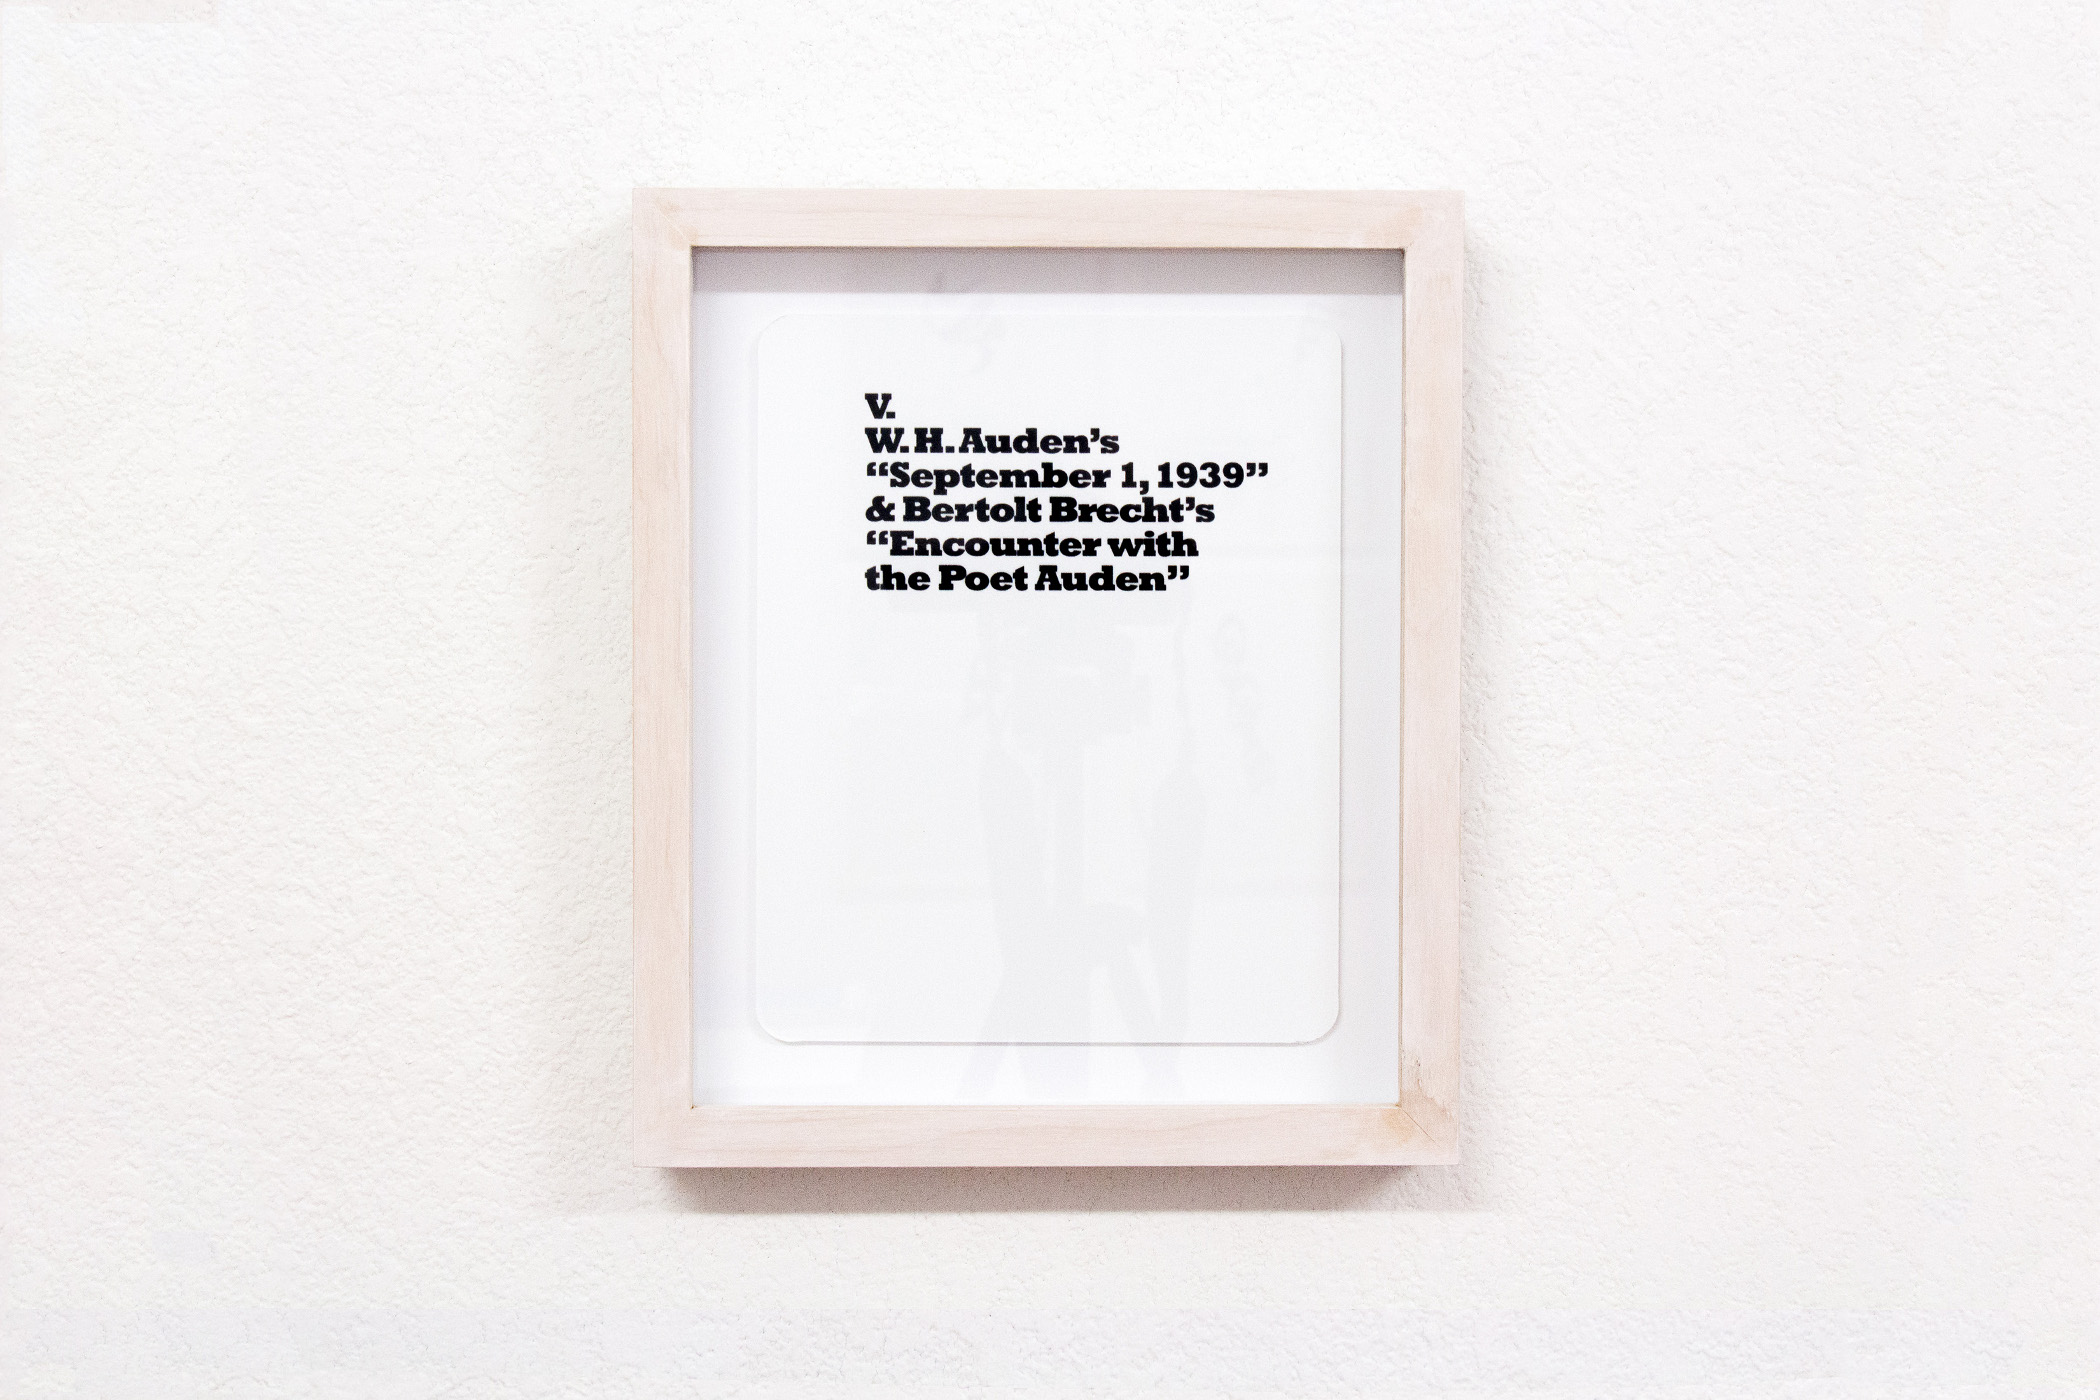 V.
W. H. Auden’s
“September 1, 1939”
& Bertolt Brecht’s
“Encounter with
the Poet Auden”